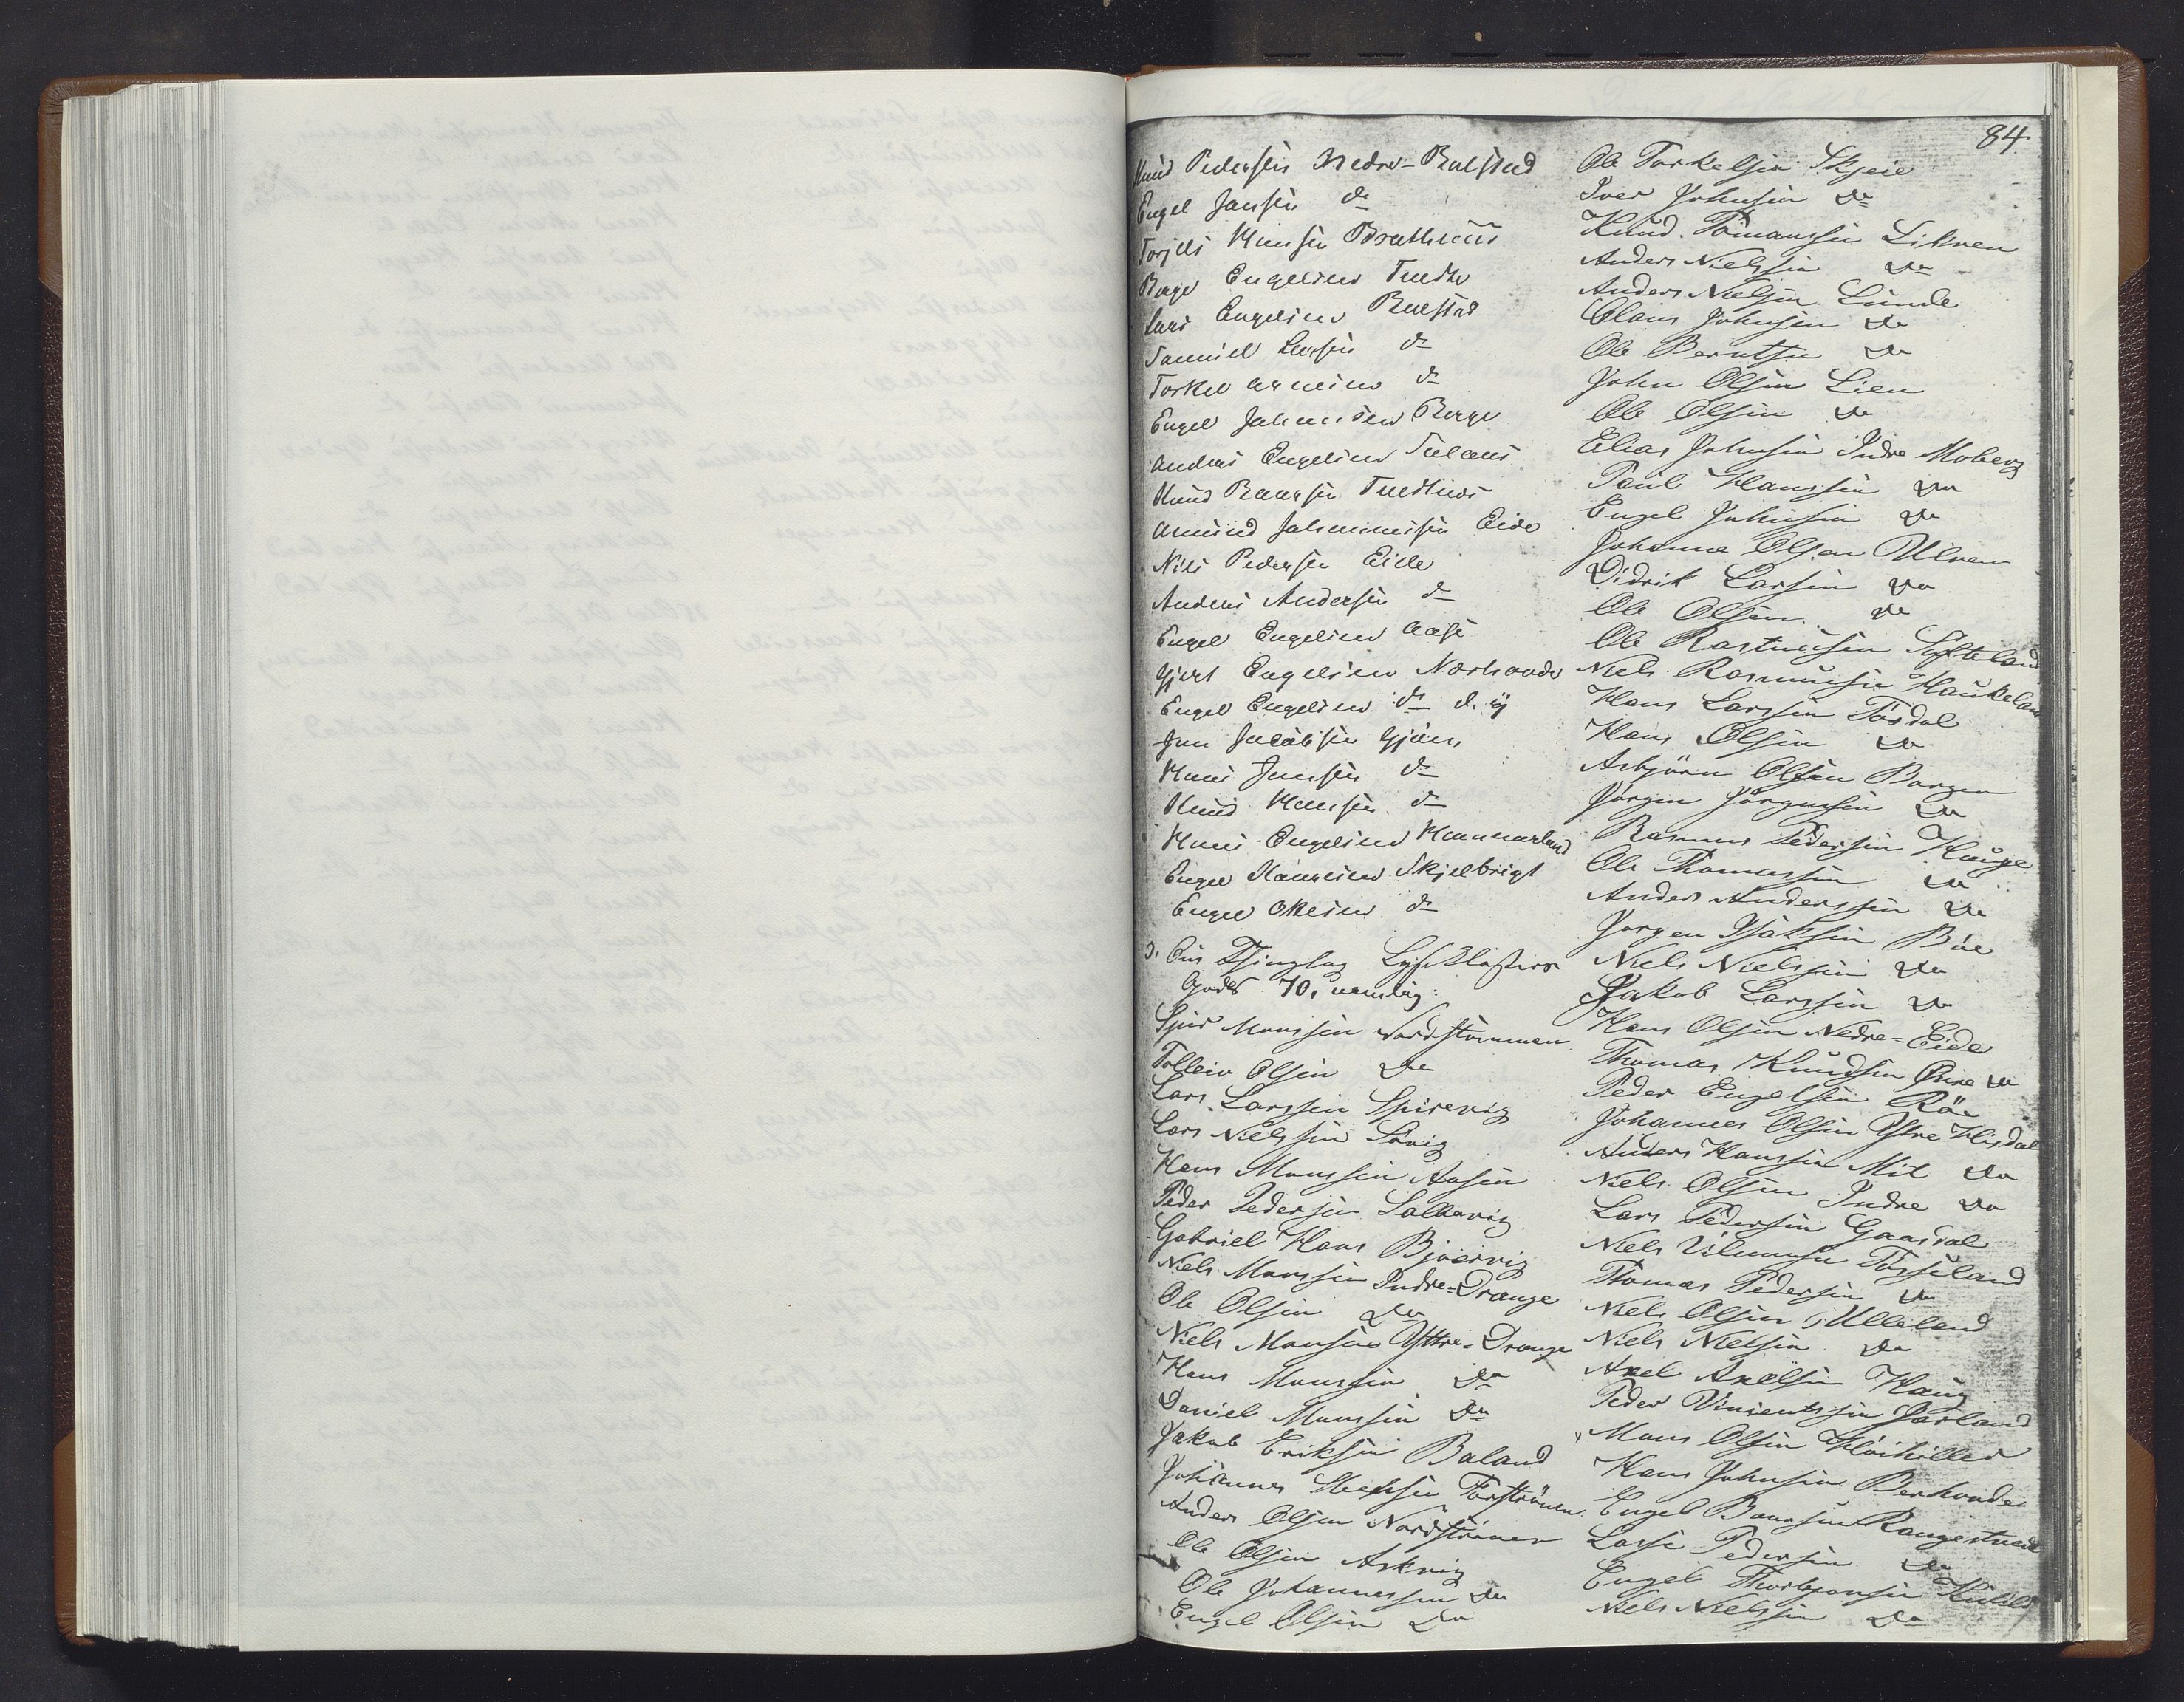 84
Knud Pedersen Nedre-Bolstad
Engel Jansen do
Torjels Hansen Brathuus
Børge Engelsen Tvedte
Lars Engelsen Bolstad
Samuel Larsen do
Torkel do
Engel Johannesen Berge
Anders Engelsen
Knud Baarsen
Amund Johannesen Eide
Nils Pedersen Eide
Anders Andersen do
Engel Engelsen Aase
Gjert Engelsen Norhovde
Engel Engelsen do d. y
Jan Jacobsen Gjøen
Hans Jansen do
Knud Hansen do
Hans Engelsen Hammarland
Engel Haavesen Skjelbrigt
Engel do
3. Ous Thinglag Lyseklosters
Gods 70, nemlig:
Sjur Monssen Nordstrømmen
Tollein Olsen do
Lars Larssen Spirevig
Lars Nielssen Søvig
Hans Monssen Aasen
Peder Pedersen Salbøvig
Gabriel Hans Bjørnvig
Niels Monssen Indre-Drange
Ole Olsen do
Niels Monsen Yttre-Drange
Hans Monssen do
Daniel Monssen do
Jakob Eriksen Baland
Johannes
Anders Olsen Nordstrønen
Ole Olsen Askvig
Ole Johannessen do
Engel Olsen do
Ole Torkelsen Skjeie
Iver Johnsen do
Knud Tomassen Lekven
Anders Nielssen do
Anders Nielsen Lunde
Claus Johnsen do
Ole Berntsen do
John Olsen Lien
Ole Olsen do
Elias Johnsen Indre Moberg
Paul Hanssen do
Engel Johnsen do
Johanne Olsen Ulven
Didrik Larsen do
Ole Olsen do
Ole Rastmusen Søfteland
Niels Rasmussen Haukeland
Hans Larssen Tøsdal
Hans Olsen do
Asbjørn Olsen Borgen
Jörgen Jörgensen do
Rasmus Pedersen Hauge
Ole Thomassen do
Anders Anderssen do
Jørgen Isaksen Bøe
Niels Nielssen do
Jakob Larssen do
Hans Olsen Nedre-Eide
Thomas Knudsen Øvre do
Peder Engelsen Røe
Johannes Olsen Ytre Hisdal
Anders Hanssen Mit do
Niels Olsen Indre do
Lars Pedersen Gaasdal
Niels Vilumsen Tøsseland
Thomas Pedersen do
Niels Olsen Ulleland
Niels Nielsen do
Axel Axelsen Haug
Peder Vinientssen Førland
Mons Olsen Høihiller
Hans Johnsen Berhovde
Engel Baarsen Rangestvedt
Lasse Pedersen do
Engel Thorbjønsen
Niels Nielssen do